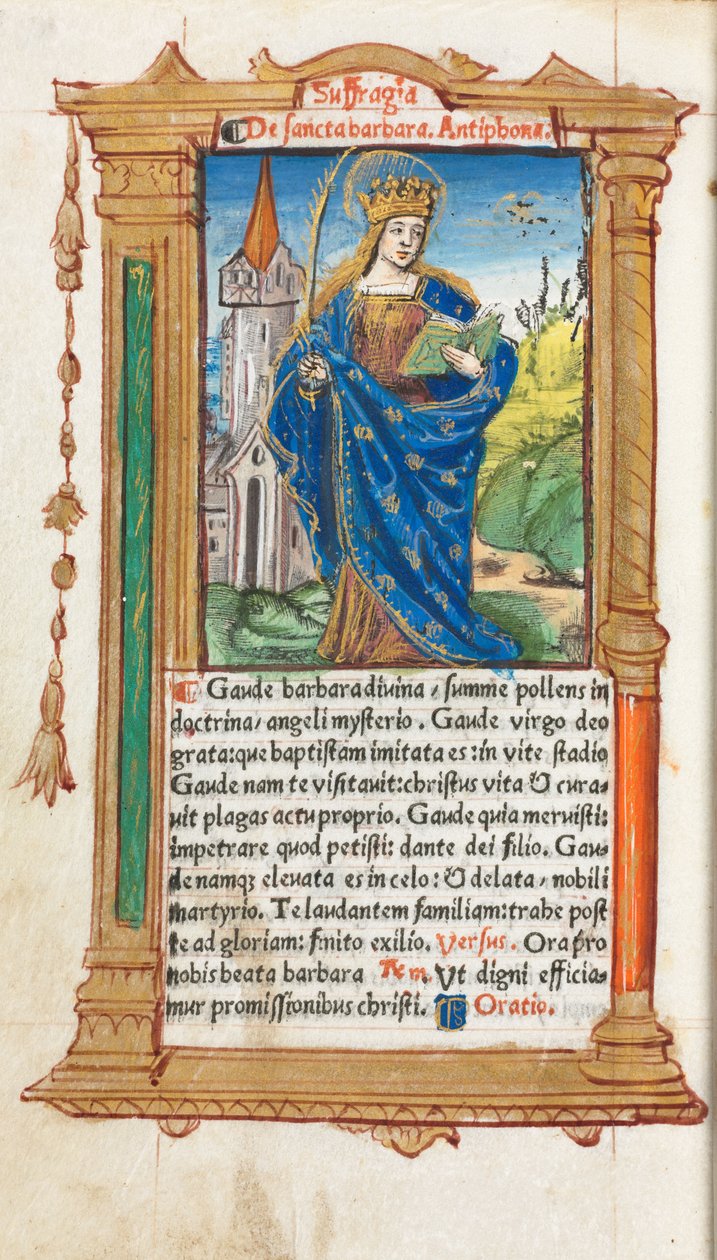 Suffragia
De sancta barbara. Antiphona.
Gaude barbara diuina / summe pollens in
doctrina / angeli mysterio. Gaude virgo deo
grata: que baptistam imitata es: in vite stadio
Gaude nam te visitauit: christus vita & cura-
uit plagas actu proprio. Gaude quia meruisti:
impetrare quod petisti: dante dei filio. Gau-
de namqꝫ eleuata es in celo: & delata / nobili
martyrio. Te laudantem familiam: trahe post
te ad gloriam: finito exilio. Versus. Ora pro
nobis beata barbara Rem. Vt digni efficia-
mur promissionibus christi. Oratio.